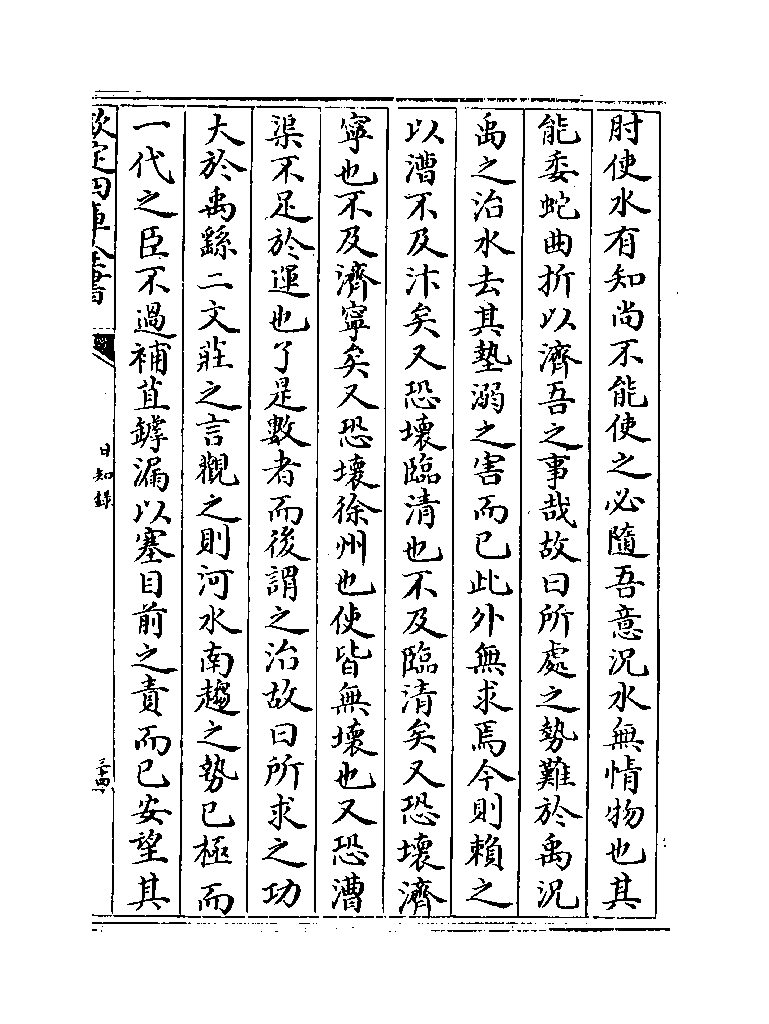 肘使水有知尚不能使之必隨吾意況水無情物也其
能委蛇曲折以濟吾之事哉故曰所處之勢難於禹況
禹之治水去其墊溺之害而已此外無求焉今則賴之
以漕不及汴矣又恐壞臨清也不及臨清矣又恐壞濟
寧也不及濟寧矣又恐壞徐州也使皆無壞也又恐漕
渠不足於運也了是數者而後謂之治故曰所求之功
大於禹繇二文莊之言觀之則河水南趨之勢已極而
一代之臣不過補苴罅漏以塞目前之責而已安望其
欽定四庫全書
日知錄
三十四